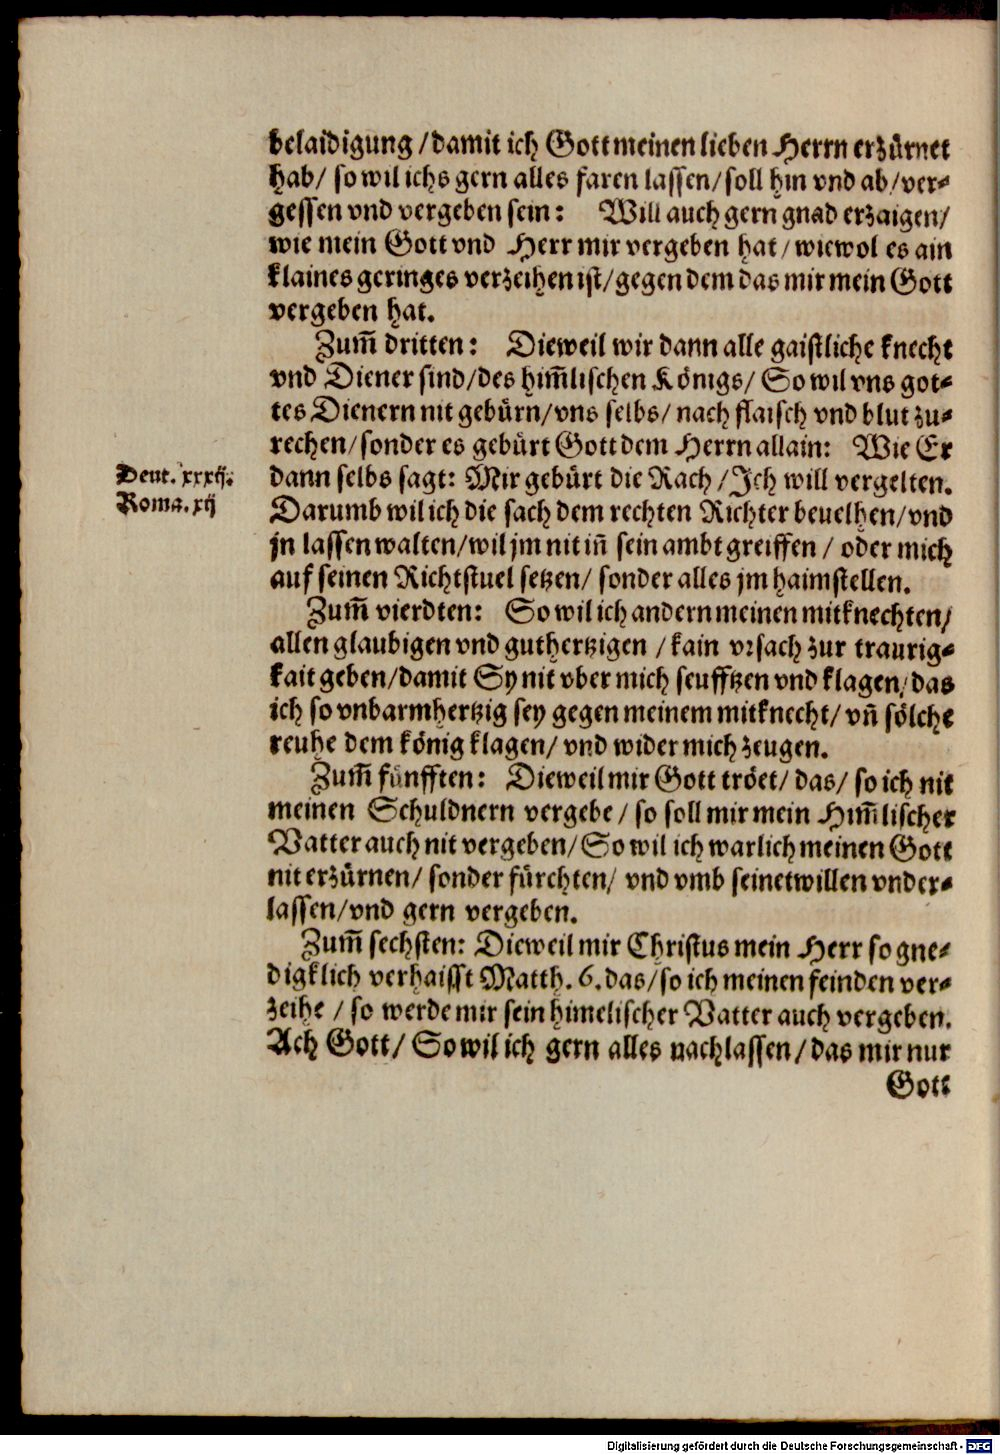 belaidigung / damit ich Gott meinen lieben Herrn erzürnet
hab / so wil ichs gern alles faren lassen / soll hin vnd ab / ver-
gessen vnd vergeben sein: Will auch gern gnad erzaigen /
wie mein Gott vnd Herr mir vergeben hat / wiewol es ain
klaines geringes verzeihen ist / gegen dem das mir mein Gott
vergeben hat.
Zum̃ dritten: Dieweil wir dann alle gaistliche knecht
vnd Diener sind / des him̃lischen Königs / So wil vns got-
tes Dienern nit gebürn / vns selbs / nach flaisch vnd blut zu-
rechen / sonder es gebürt Gott dem Herrn allain: Wie Er
Deut. xxxij.
dann selbs sagt: Mir gebürt die Rach / Ich will vergelten.
Roma. xij
Darumb wil ich die sach dem rechten Richter beuelhen / vnd
jn lassen walten / wil jm nit iñ sein ambt greiffen / oder mich
auf seinen Richtstuel setzen / sonder alles jm haimstellen.
Zum̃ vierdten: So wil ich andern meinen mitknechten /
allen glaubigen vnd guthertzigen / kain vrsach zur traurig-
kait geben / damit Sy nit vber mich seufftzen vnd klagen / das
ich so vnbarmhertzig sey gegen meinem mitknecht / vñ sölche
reuhe dem könig klagen / vnd wider mich zeugen.
Zum̃ fünfften: Dieweil mir Gott tröet / das / so ich nit
meinen Schuldnern vergebe / so soll mir mein Him̃lischer
Vatter auch nit vergeben / So wil ich warlich meinen Gott
nit erzürnen / sonder fürchten / vnd vmb seinetwillen vnder-
lassen / vnd gern vergeben.
Zum̃ sechsten: Dieweil mir Christus mein Herr so gne-
digklich verhaisst Matth. 6. das / so ich meinen feinden ver-
zeihe / so werde mir sein himelischer Vatter auch vergeben.
Ach Gott / So wil ich gern alles nachlassen / das mir nur
Gott
Digitalisierung gefördert durch die Deutsche Forschungsgemeinschaft - DFG